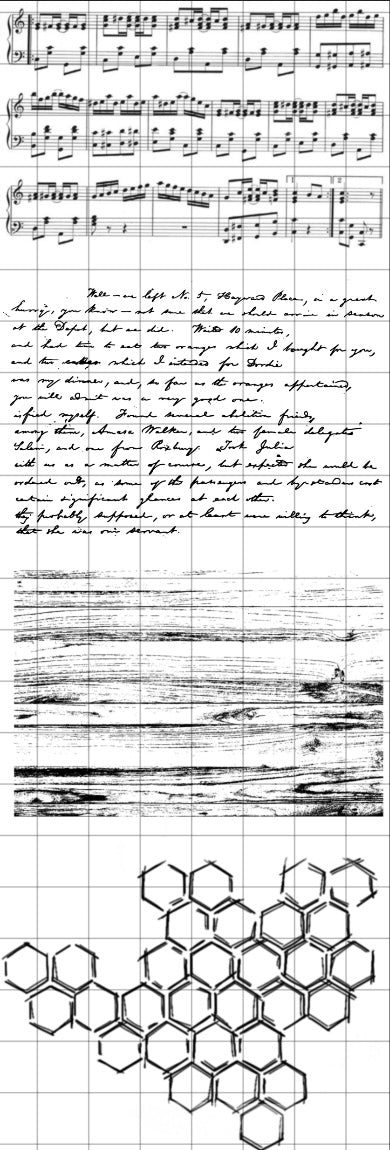 Well - we left No. 5, Hayward Place, in a great
hurry, you know - not sure that we should arrive in season
at the Depot, but we did. Waited 10 minutes,
and had time to eat two oranges which I bought for you,
and two which I intended for
was my dinner, and, so far as the oranges appertained,
you will admit was a very good one.
myself. Found several abolition friends,
among them, Amasa Walker, and two female delegates
Salem, and one from Roxbury. Took Julia
with us as a matter of course, but expected she would be
ordered out, as some of the passengers and by-standers cast
certain significant glances at each other.
They probably supposed, or at least were willing to think,
that she was our servant.